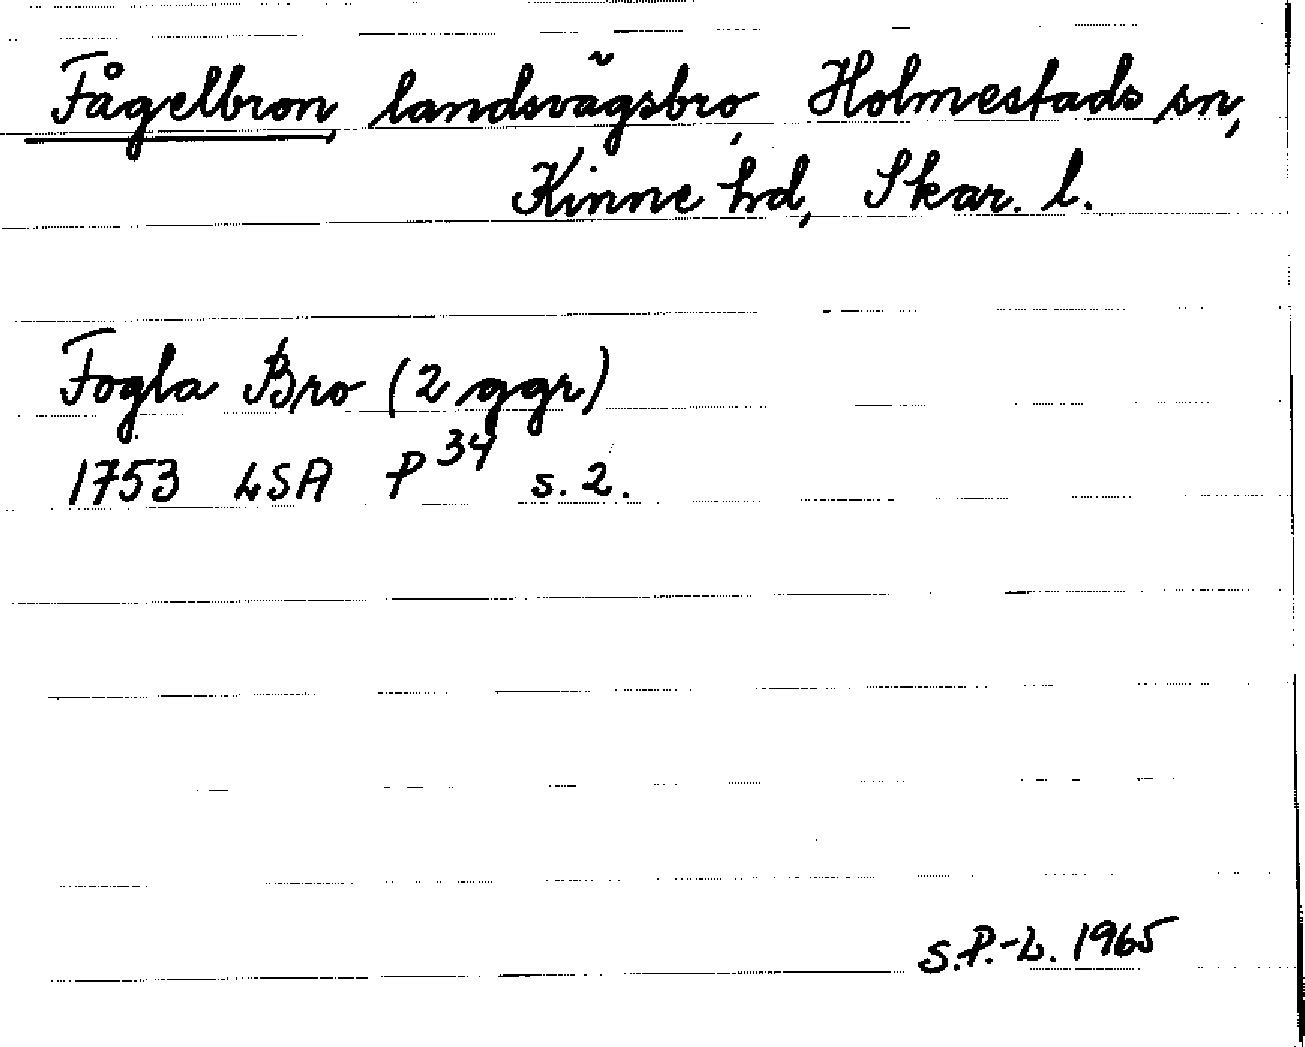 Fågelbron, landsvägsbro, Holmestads sn,
Kinne hd, Skar. l.
Fogla Bro (2 ggr)
1753 LSA P³⁴ s. 2.
S.P.-L. 1965